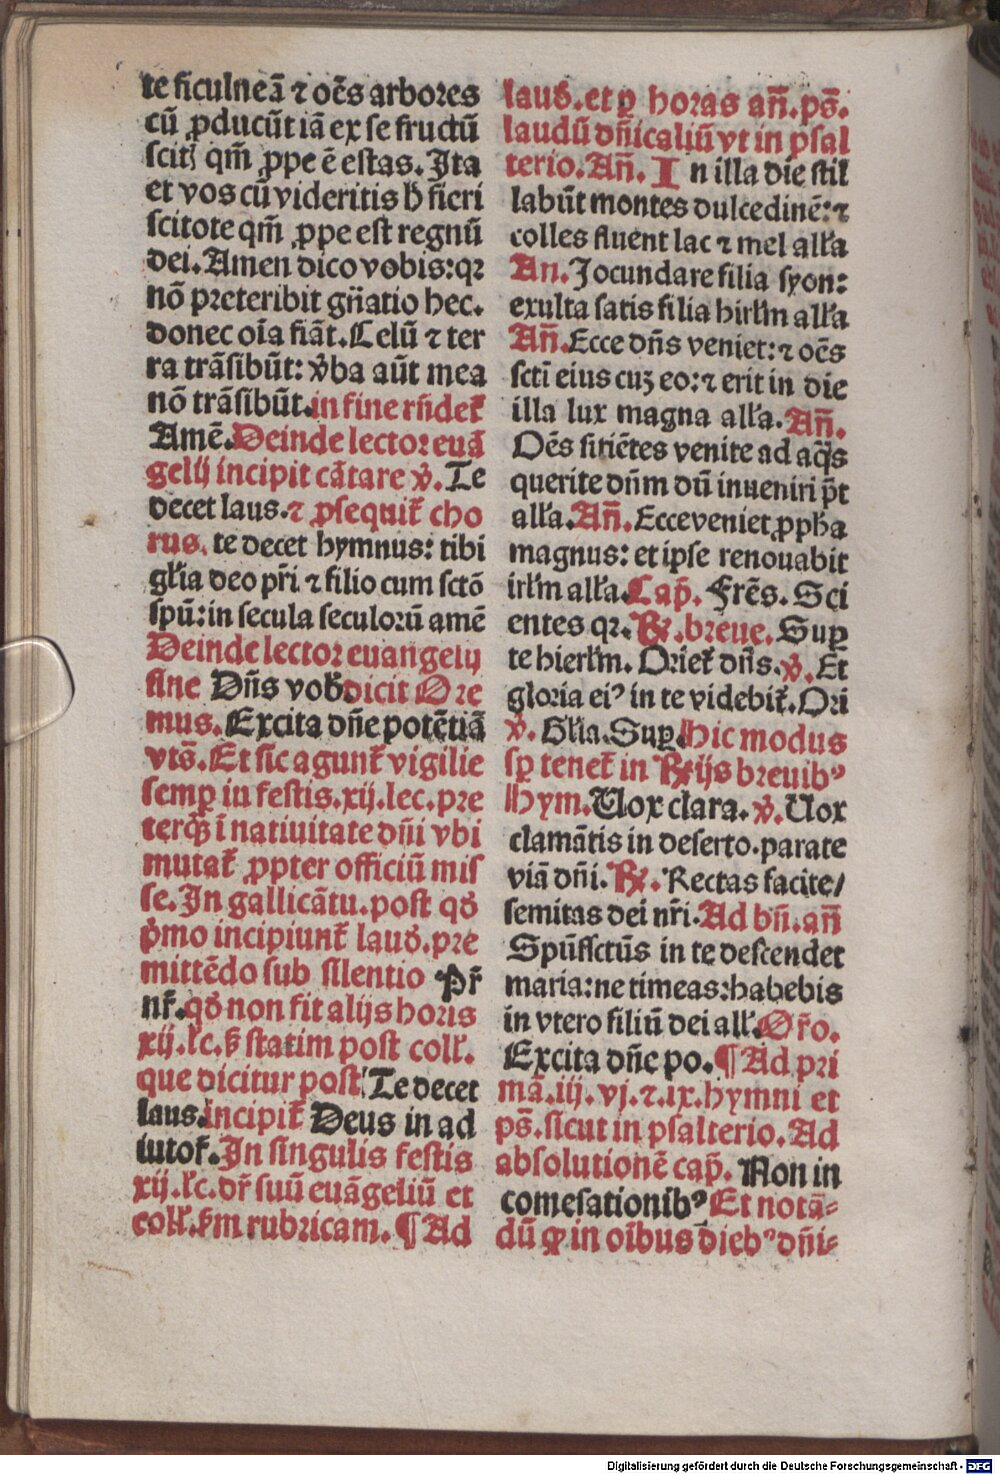 te ficulneā ⁊ oēs arbores
cū ꝓducūt iā ex se fructū
scitꝭ qm̄ ꝓpe ē estas. Ita
et vos cū videritis h̄ fieri
scitote qm̄ ꝓpe est regnū
dei. Amen dico vobis: qꝛ
nō preteribit gn̄atio hec.
donec oīa fiāt. Celū ⁊ ter
ra trāsibūt: v̄ba aūt mea
nō trāsibūt. in fine rn̄det᷑
Amē. Deinde lector euā
gelij incipit cātare ℣. Te
decet laus. ⁊ ꝓsequit᷑ cho
rus. te decet hymnus: tibi
gl'ia deo pr̄i ⁊ filio cum sctō
spū: in secula seculorū amē
Deinde lector euangelij
sine Dn̄s vob̄ dicit Ore
mus. Excita dn̄e potētiā
vts̄. Et sic agunt᷑ vigilie
semꝑ in festis. xij. lec. pre
terqȝ̄ ī natiuitate dn̄i vbi
mutat᷑ ꝓpter officiū mis
se. In gallicātu. post qd̄
p̄mo incipiunt᷑ laud̄. pre
mittēdo sub silentio Pr̄
nr̄. qd̄ non fit alijs horis
xij. lc̄. ꝫ statim post coll̄.
que dicitur post Te decet
laus. incipit᷑ Deus in ad
iutor̄. In singulis festis
xij. lc̄. dr̄ suū euāgeliū et
coll̄. ẜm rubricam. ¶ Ad
laud̄. et ꝑ horas an̄. ps̄.
laudū dn̄icaliū vt in psal
terio. An̄. In illa die stil
labūt montes dulcedinē: ⁊
colles fluent lac ⁊ mel all'a
An. Jocundare filia syon:
exulta satis filia hirl'm all'a
An̄. Ecce dn̄s veniet: ⁊ oēs
sctī eius cuȝ eo: ⁊ erit in die
illa lux magna all'a. An̄.
Oēs sitiētes venite ad aq̄s
querite dn̄m dū inueniri p̄t
all'a. An̄. Ecce veniet ꝓph̄a
magnus: et ipse renouabit
irl'm all'a. Cap̄. Frēs. Sci
entes qꝛ. ℞. breue. Suꝑ
te hierl'm. Oriet᷑ dn̄s. ℣. Et
gloria eiꝰ in te videbit᷑. Ori
℣. Gl'ia. Suꝑ. Hic modus
sꝑ tenet᷑ in ℞ijs breuibꝰ
Hym. Uox clara. ℣. Uox
clamātis in deserto. parate
viā dn̄i. ℞. Rectas facite/
semitas dei nr̄i. Ad bn̄. an̄
Spūssctūs in te descendet
maria: ne timeas: habebis
in vtero filiū dei all'. Or̄o.
Excita dn̄e po. ¶ Ad pri
mā. iij. vj. ⁊. ix. hymni et
ps̄. sicut in psalterio. Ad
absolutionē cap̄. Non in
comesationibꝰ Et notā=
dū ꝙ in oībus diebꝰ dn̄i=
Digitalisierung gefördert durch die Deutsche Forschungsgemeinschaft - DFG